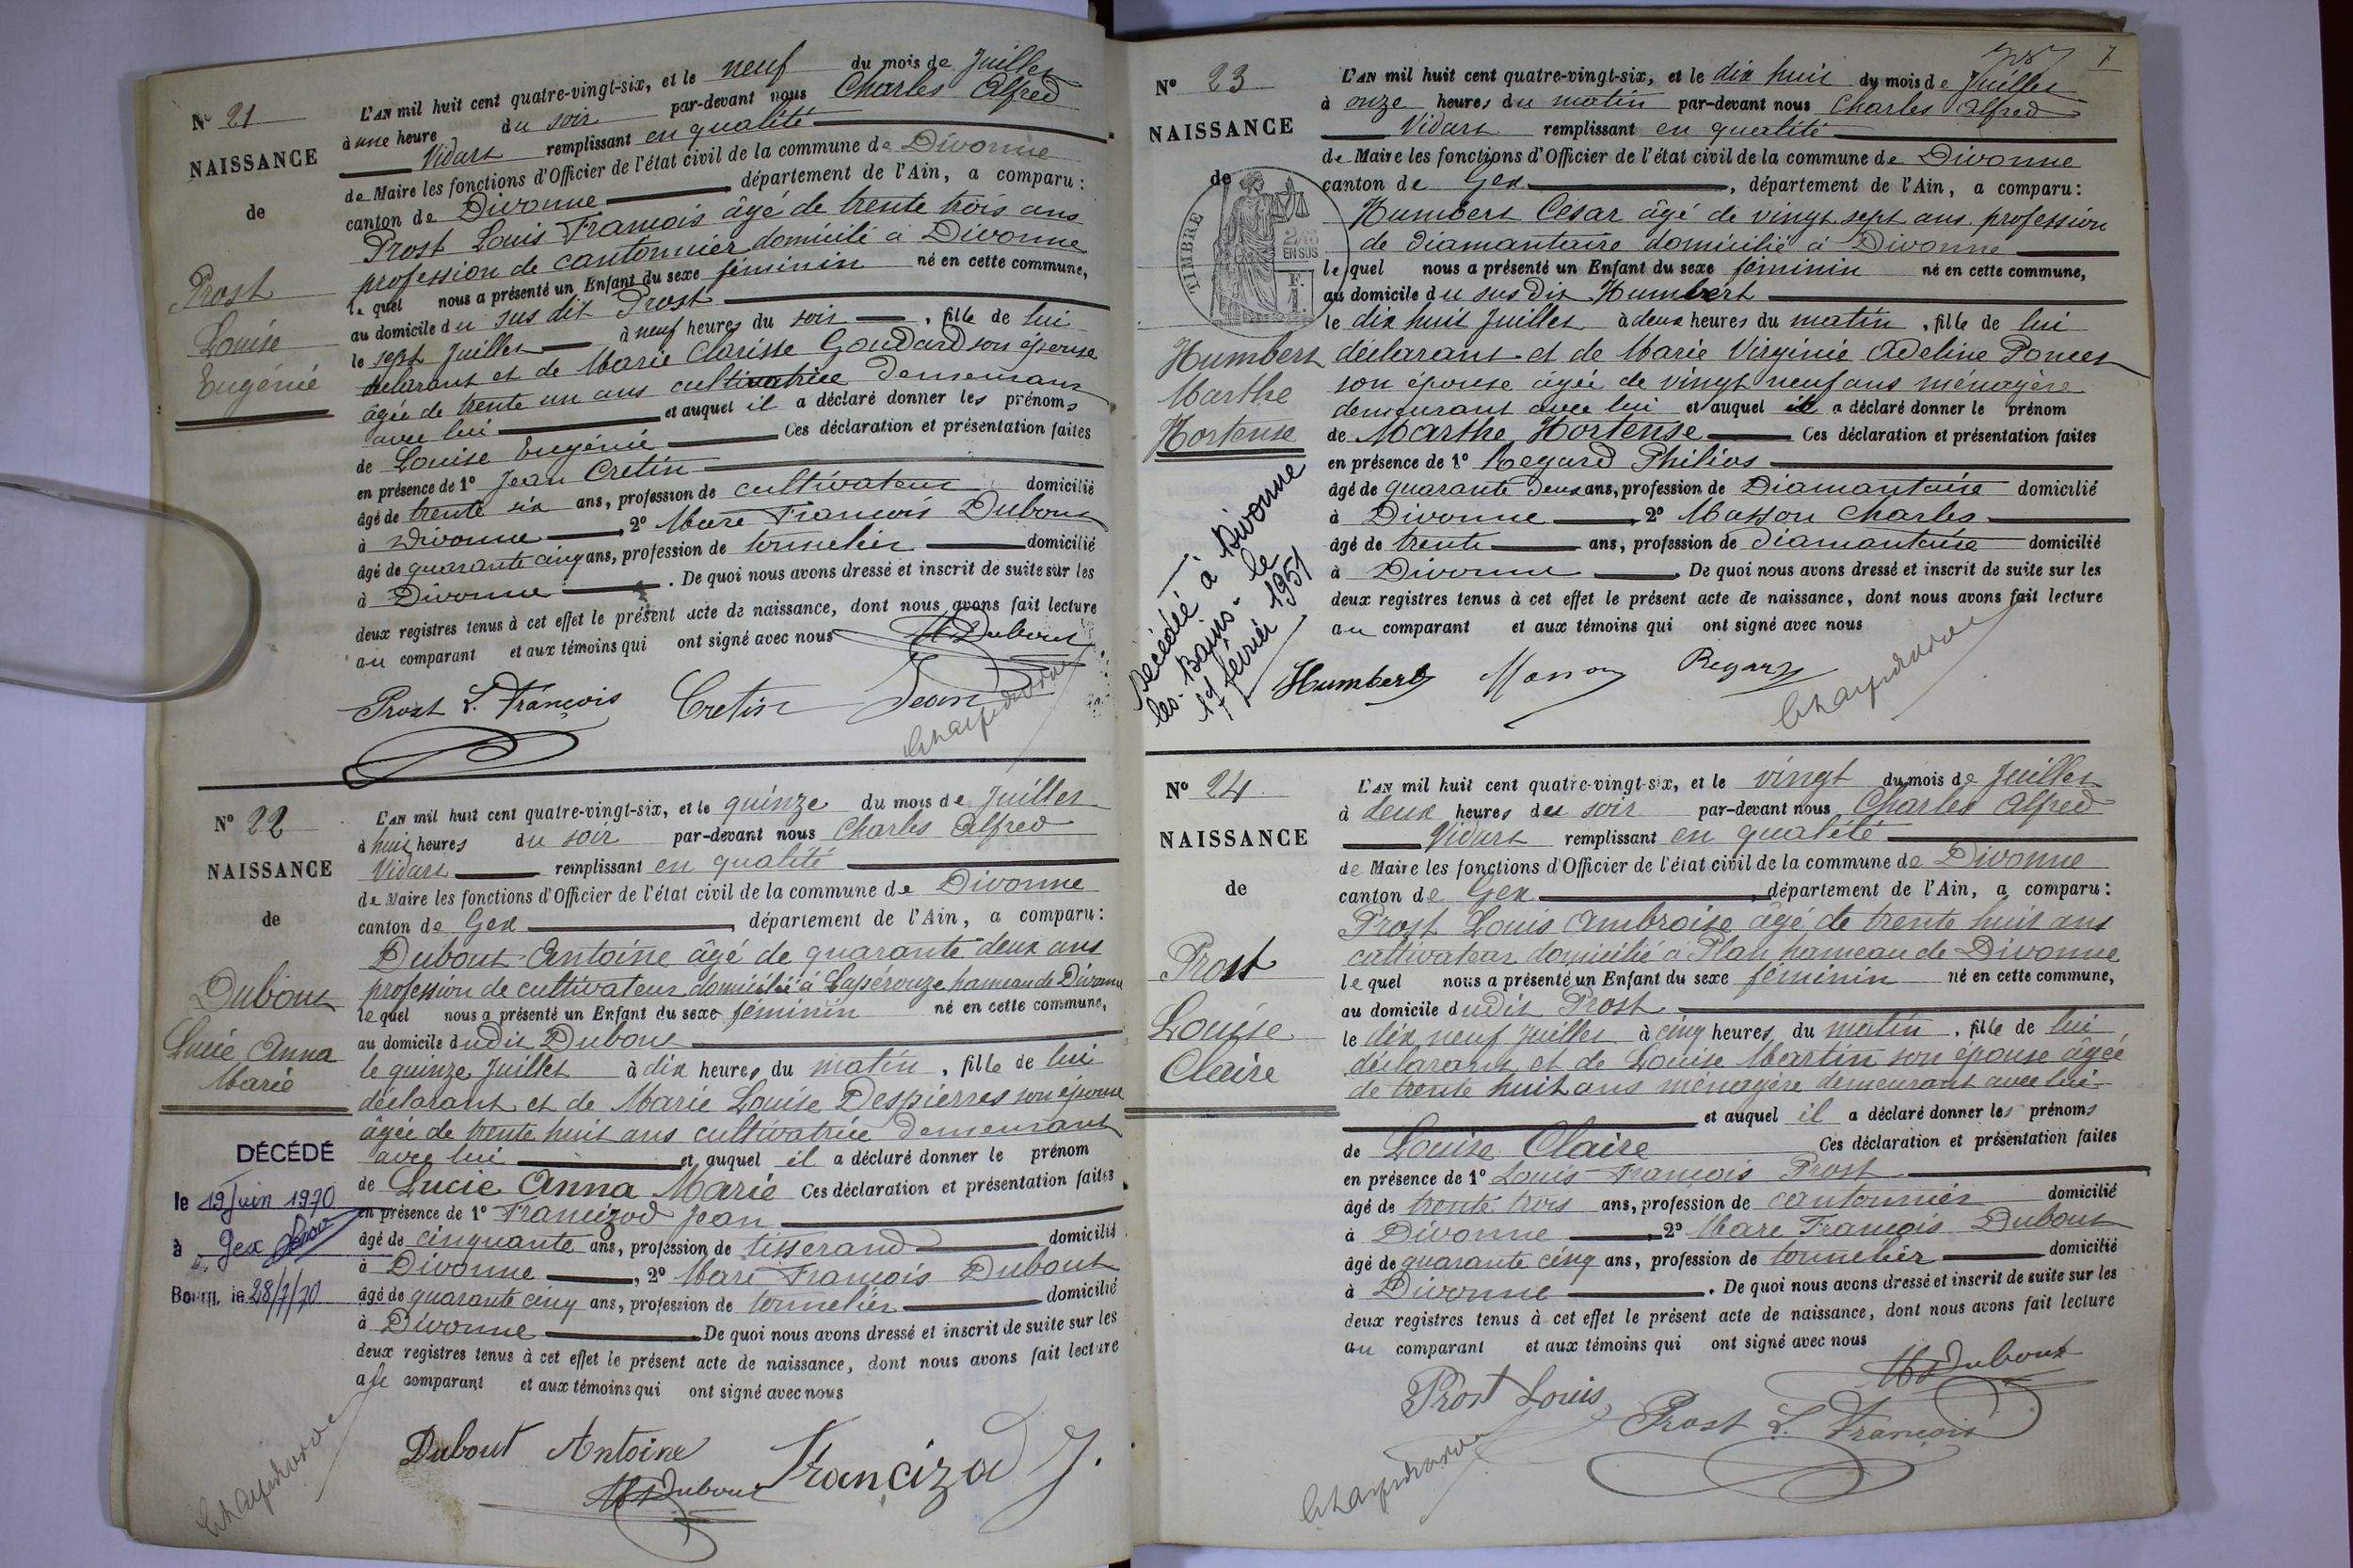 N° 21
NAISSANCE
de
Prost
Louise
Eugénie
L'AN mil huit cent quatre-vingt-six, et le neuf du mois de Juillet
à une heure du soir par-devant nous Charles Alfred
Vidart remplissant en qualité
de Maire les fonctions d'Officier de l'état civil de la commune de Divonne
canton de Divonne département de l'Ain, a comparu:
Prost Louis François âgé de trente trois ans
profession de cantonnier domicilié à Divonne
lequel nous a présenté un Enfant du sexe féminin né en cette commune,
au domicile du sus dit Prost
le sept Juillet à neuf heures du soir, fille de lui
déclarant et de Marie Clarisse Goudard son épouse
âgée de trente un ans cultivatrice demeurant
avec lui et auquel il a déclaré donner les prénoms
de Louise Eugénie Ces déclaration et présentation faites
en présence de 1° Jean Cretin
âgé de trente six ans, profession de cultivateur domicilié
à Divonne, 2° Marc François Dubout
âgé de quarante cinq ans, profession de tonnelier domicilié
à Divonne. De quoi nous avons dressé et inscrit de suite sur les
deux registres tenus à cet effet le présent acte de naissance, dont nous avons fait lecture
au comparant et aux témoins qui ont signé avec nous
M Dubout
Prost L. François Cretin Jean
N° 22
NAISSANCE
de
Dubout
Lucie Anna
Marie
DÉCÉDÉ
le 19 Juin 1970
à Gex
Bourg, le 28/7/70
L'AN mil huit cent quatre-vingt-six, et le quinze du mois de Juillet
à huit heures du soir par-devant nous Charles Alfred
Vidart remplissant en qualité
de Maire les fonctions d'Officier de l'état civil de la commune de Divonne
canton de Gex, département de l'Ain, a comparu:
Dubout Antoine âgé de quarante deux ans
profession de cultivateur domicilié à Lapérouze hameau de Divonne
lequel nous a présenté un Enfant du sexe féminin né en cette commune,
au domicile dudit Dubout
le quinze Juillet à dix heures du matin, fille de lui
déclarant et de Marie Louise Despierres son épouse
âgée de trente huit ans cultivatrice demeurant
avec lui et auquel il a déclaré donner le prénom
de Lucie Anna Marie Ces déclaration et présentation faites
en présence de 1° Francizod Jean
âgé de cinquante ans, profession de tisserand domicilié
à Divonne, 2° Marc François Dubout
âgé de quarante cinq ans, profession de tonnelier domicilié
à Divonne De quoi nous avons dressé et inscrit de suite sur les
deux registres tenus à cet effet le présent acte de naissance, dont nous avons fait lecture
au comparant et aux témoins qui ont signé avec nous
Dubout Antoine Francizod J.
M Dubout
7
N° 23
NAISSANCE
de
TIMBRE
2/10
EN SUS
Humbert
Marthe
Hortense
Décédée à Divonne
les-Bains- le
17 février 1951
L'AN mil huit cent quatre-vingt-six, et le dix huit du mois de Juillet
à onze heures du matin par-devant nous Charles Alfred
Vidart remplissant en qualité
de Maire les fonctions d'Officier de l'état civil de la commune de Divonne
canton de Gex, département de l'Ain, a comparu:
Humbert César âgé de vingt sept ans profession
de diamantaire domicilié à Divonne
lequel nous a présenté un Enfant du sexe féminin né en cette commune,
au domicile du sus dit Humbert
le dix huit Juillet à deux heures du matin, fille de lui
déclarant et de Marie Virginie Adeline Poncet
son épouse âgée de vingt neuf ans ménagère
demeurant avec lui et auquel il a déclaré donner le prénom
de Marthe Hortense Ces déclaration et présentation faites
en présence de 1° Regard Philias
âgé de quarante deux ans, profession de Diamantaire domicilié
à Divonne 2° Masson Charles
âgé de trente ans, profession de diamantaire domicilié
à Divonne De quoi nous avons dressé et inscrit de suite sur les
deux registres tenus à cet effet le présent acte de naissance, dont nous avons fait lecture
au comparant et aux témoins qui ont signé avec nous
Humbert Masson Regard
N° 24
NAISSANCE
de
Prost
Louise
Claire
L'AN mil huit cent quatre-vingt-six, et le vingt du mois de Juillet
à deux heures du soir par-devant nous Charles Alfred
Vidart remplissant en qualité
de Maire les fonctions d'Officier de l'état civil de la commune de Divonne
canton de Gex, département de l'Ain, a comparu:
Prost Louis Ambroise âgé de trente huit ans
cultivateur domicilié à Plan hameau de Divonne
lequel nous a présenté un Enfant du sexe féminin né en cette commune,
au domicile dudit Prost
le dix neuf Juillet à cinq heures du matin, fille de lui
déclarant et de Louise Martin son épouse âgée
de trente huit ans ménagère demeurant avec lui
et auquel il a déclaré donner les prénoms
de Louise Claire Ces déclaration et présentation faites
en présence de 1° Louis François Prost
âgé de trente trois ans, profession de cantonnier domicilié
à Divonne, 2° Marc François Dubout
âgé de quarante cinq ans, profession de tonnelier domicilié
à Divonne. De quoi nous avons dressé et inscrit de suite sur les
deux registres tenus à cet effet le présent acte de naissance, dont nous avons fait lecture
au comparant et aux témoins qui ont signé avec nous
M Dubout
Prost Louis Prost L. François